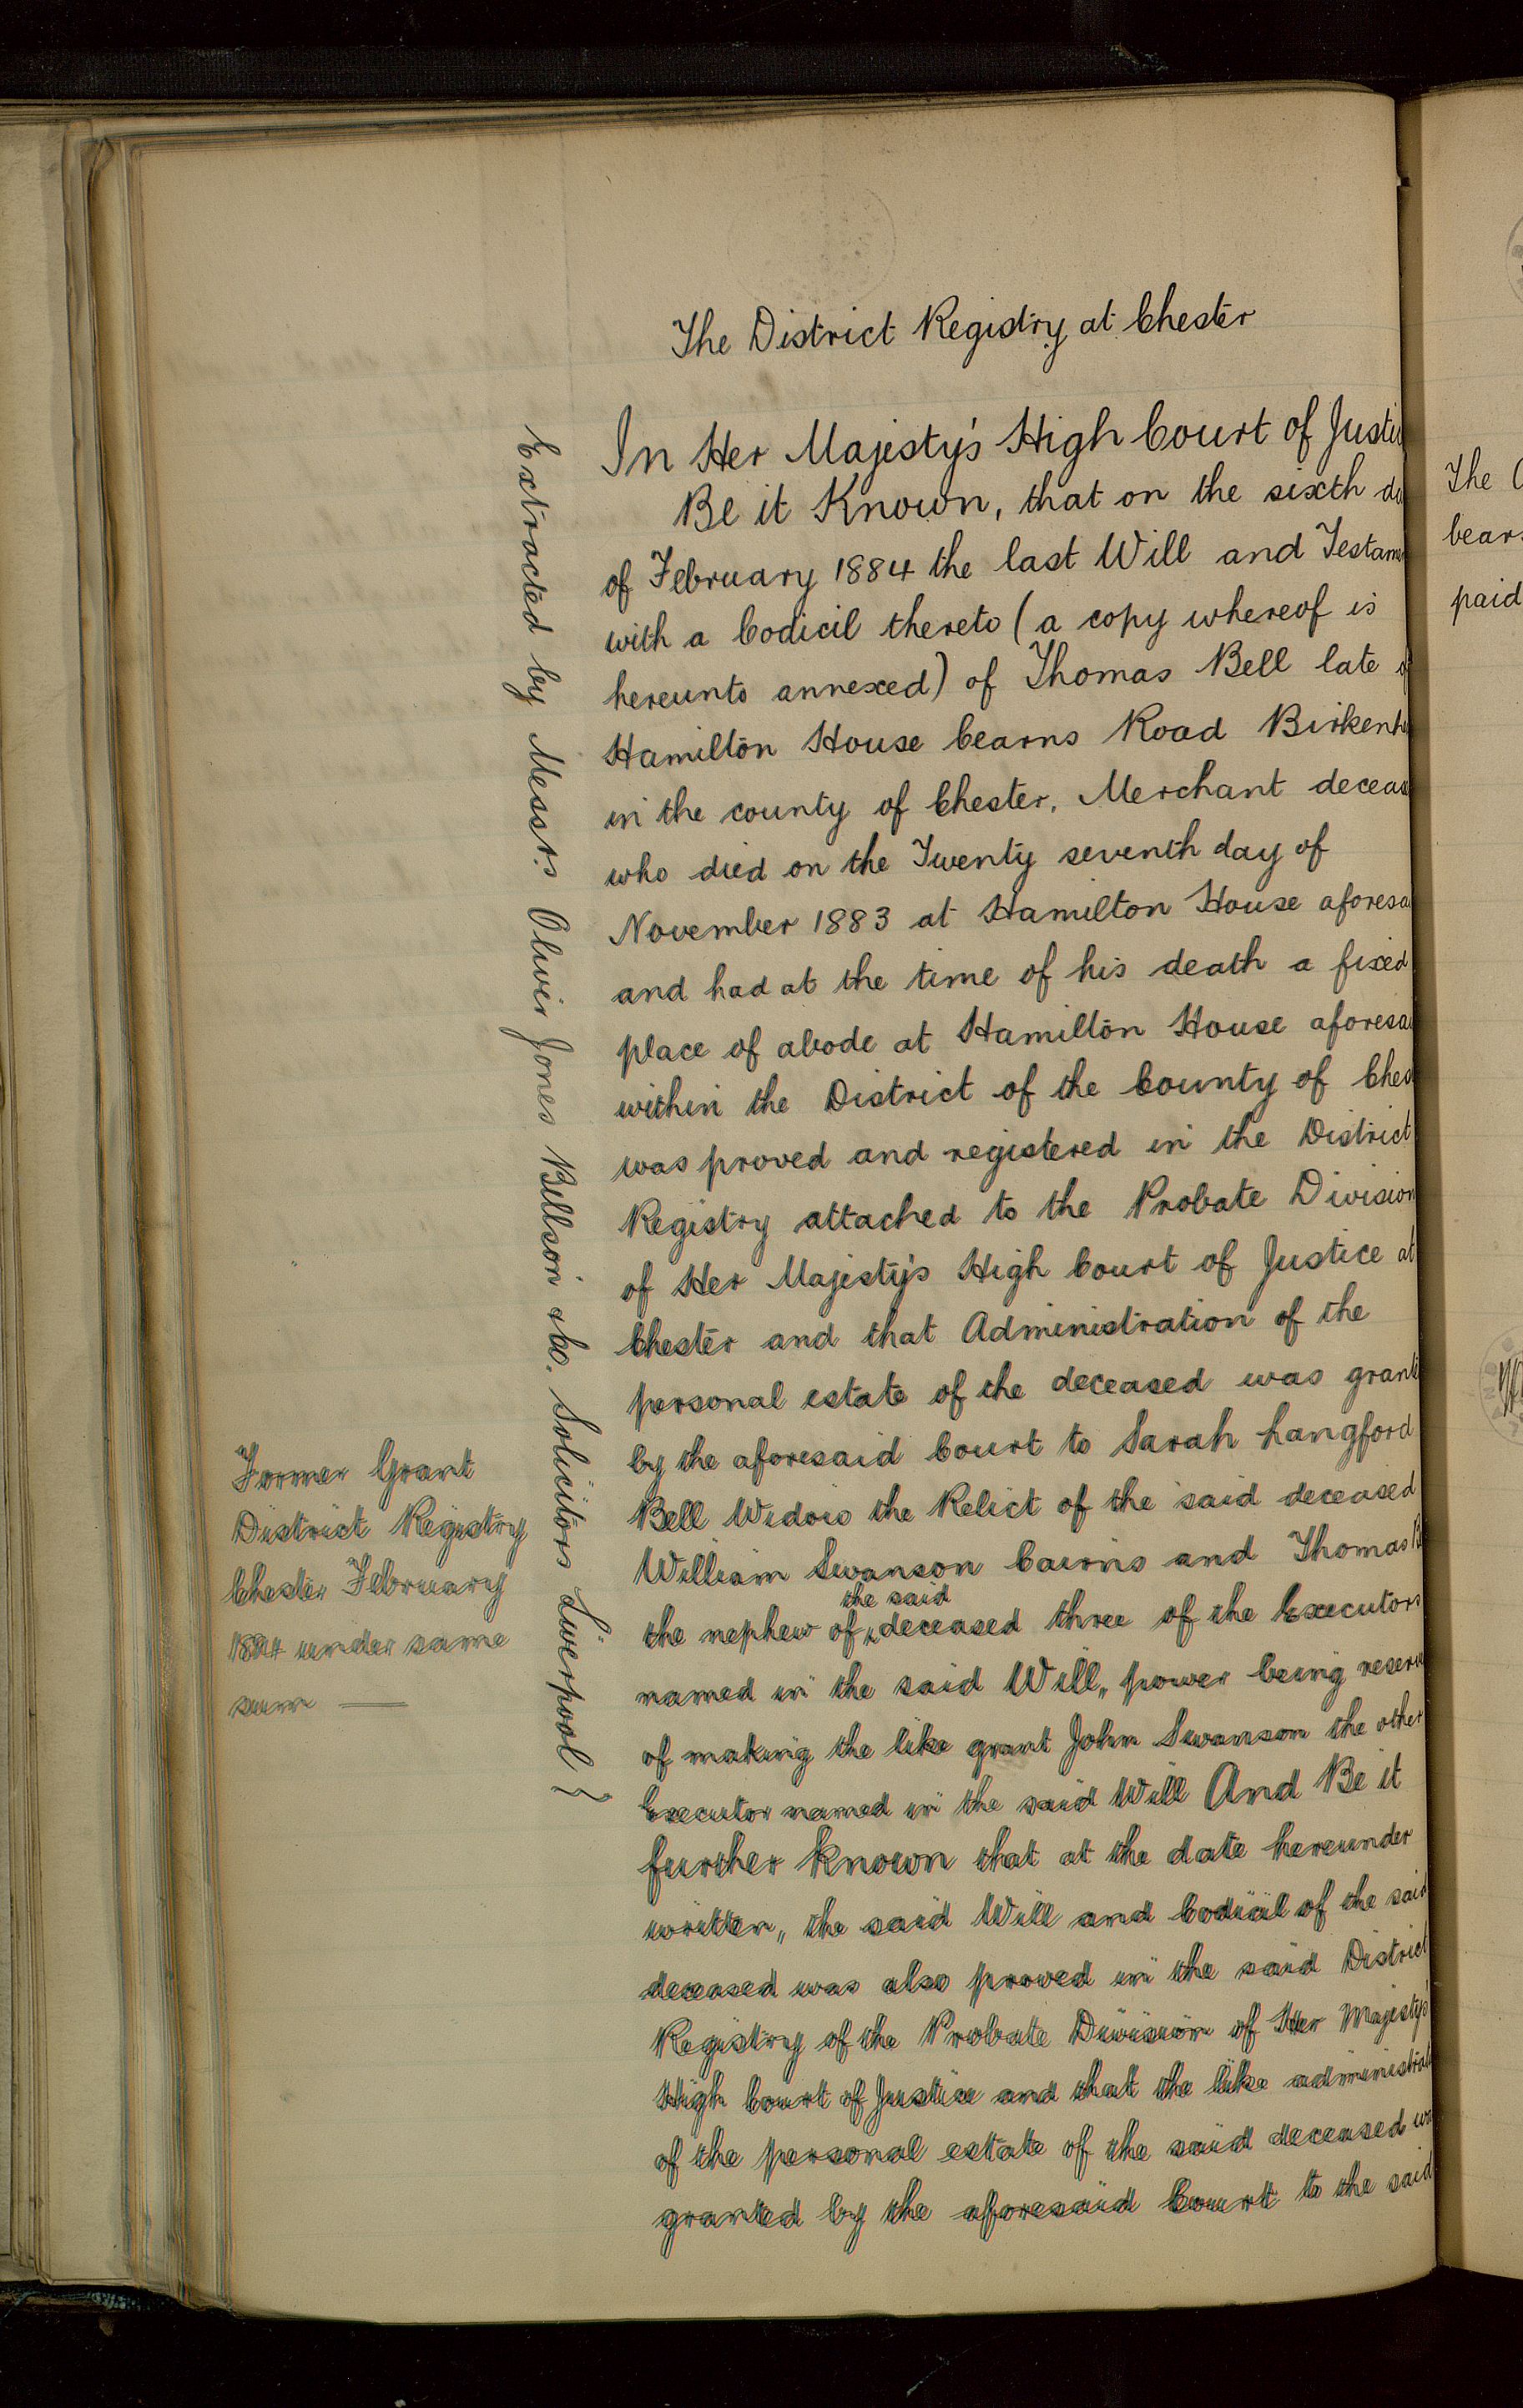 The District Registry at Chester
In Her Majesty's High Court of Justi
Be it Known, that on the sixth
of February 1884 the last Will and Testam
with a Codicil thereto (a copy whereof is
hereunto annexed) of Thomas Bell late of
Hamilton House Cearns Road Birkenh
in the county of Chester, Merchant deceas
who died on the Twenty seventh day of
November 1883 at Hamilton House aforesa
and had at the time of his death a fixed
place of abode at Hamilton House aforesa
within the District of the County of Ches
was proved and registered in the District
Registry attached to the Probate Division
of Her Majesty's High Court of Justice at
Chester and that Administration of the
personal estate of the deceased was grant
by the aforesaid Court to Sarah Langford
Bell Widow the Relict of the said deceased
William Swanson Cairns and Thomas
the said
the nephew of deceased three of the Executors
named in the said Will, power being reser
of making the like grant John Swanson the other
Executor named in the said Will And Be it
further known that at the date hereunder
written, the said Will and Codicil of the said
deceased was also proved in the said District
Registry of the Probate Division of Her Majesty's
High Court of Justice and that the like administrat
of the personal estate of the said deceased
granted by the aforesaid Court to the said
Extracted by Messrs. Oliver Jones Bellson & Co. Solicitors Liverpool
Former Grant
District Registry
Chester February
1884 under same
sum
The
bears
paid